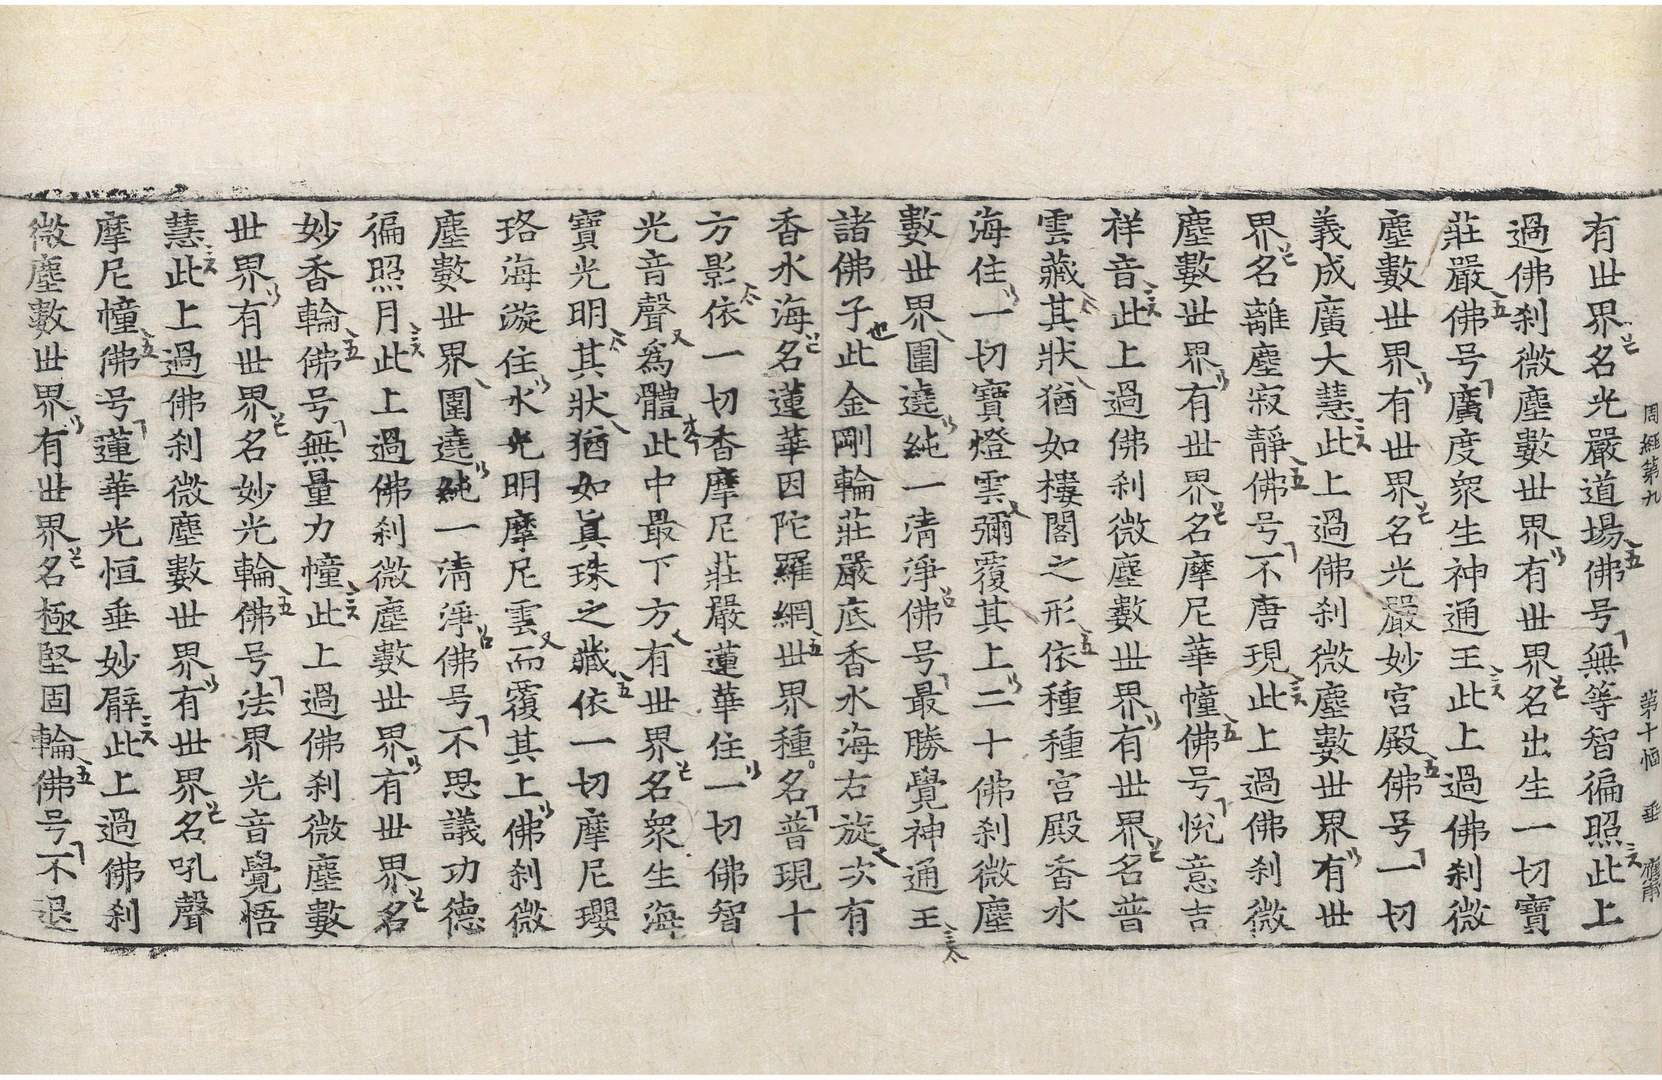 周經第九　第十㥲　垂
有世界名光嚴道場佛号無等智徧照此上
過佛刹微塵數世界有世界名出生一切寶
莊嚴佛号廣度衆生神通王此上過佛刹微
塵數世界有世界名光嚴妙宫殿佛号一切
義成廣大慧此上過佛刹微塵數世界有世
界名離塵寂靜佛号不唐現此上過佛刹微
塵數世界有世界名摩尼華幢佛号悅意吉
祥音此上過佛刹微塵數世界有世界名普
雲藏其狀猶如樓閣之形依種種宫殿香水
海住一切寶燈雲彌覆其上二十佛刹微塵
數世界圍遶純一清淨佛号最勝覺神通王
諸佛子此金剛輪莊嚴底香水海右旋次有
香水海名蓮華因陀羅網世界種名普現十
方影依一切香摩尼莊嚴蓮華住一切佛智
光音聲爲體此中最下方有世界名衆生海
寶光明其狀猶如眞珠之藏依一切摩尼瓔
珞海漩住水光明摩尼雲而覆其上佛刹微
塵數世界圍遶純一清淨佛号不思議功德
徧照月此上過佛刹微塵數世界有世界名
妙香輪佛号無量力幢此上過佛刹微塵數
世界有世界名妙光輪佛号法界光音覺悟
慧此上過佛刹微塵數世界有世界名吼聲
摩尼幢佛号蓮華光恒垂妙臂此上過佛刹
微塵數世界有世界名極堅固輪佛号不退